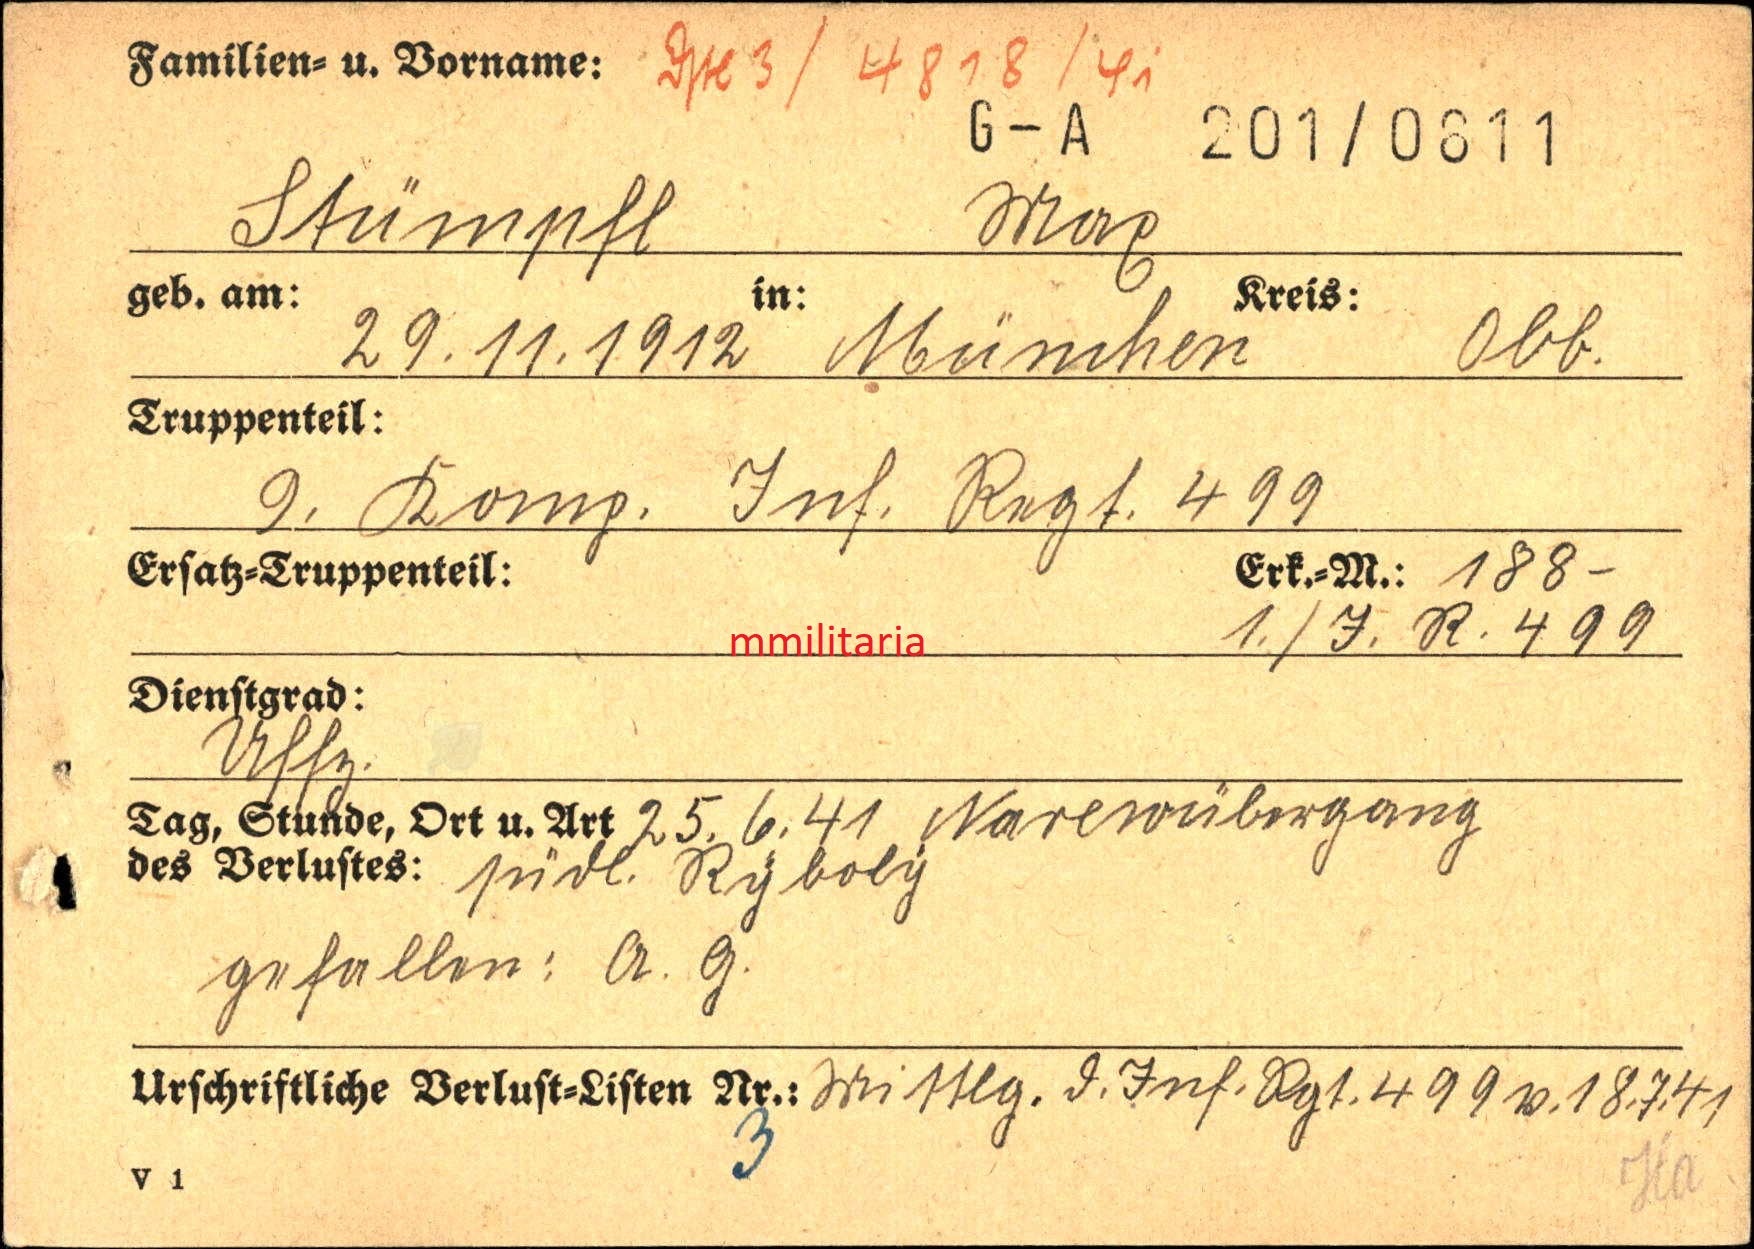 Familien- u. Vorname: 3/ 4818 /41
G-A 201/0811
Stümpfl Max
geb. am: 29.11.1912 in: München Kreis: Obb.
Truppenteil:
9. Komp. Inf. Regt. 499
Ersatz-Truppenteil: Erk.-M.: 188-
1./J. R. 499
mmilitaria
Dienstgrad:
Uffz.
Tag, Stunde, Ort u. Art 25.6.41 Narewübergang
des Verlustes: südl. Ryboly
gefallen: A. G.
Urschriftliche Verlust-Listen Nr.: Mittlg. d. Inf. Rgt. 499 v. 18.7.41
3
V 1